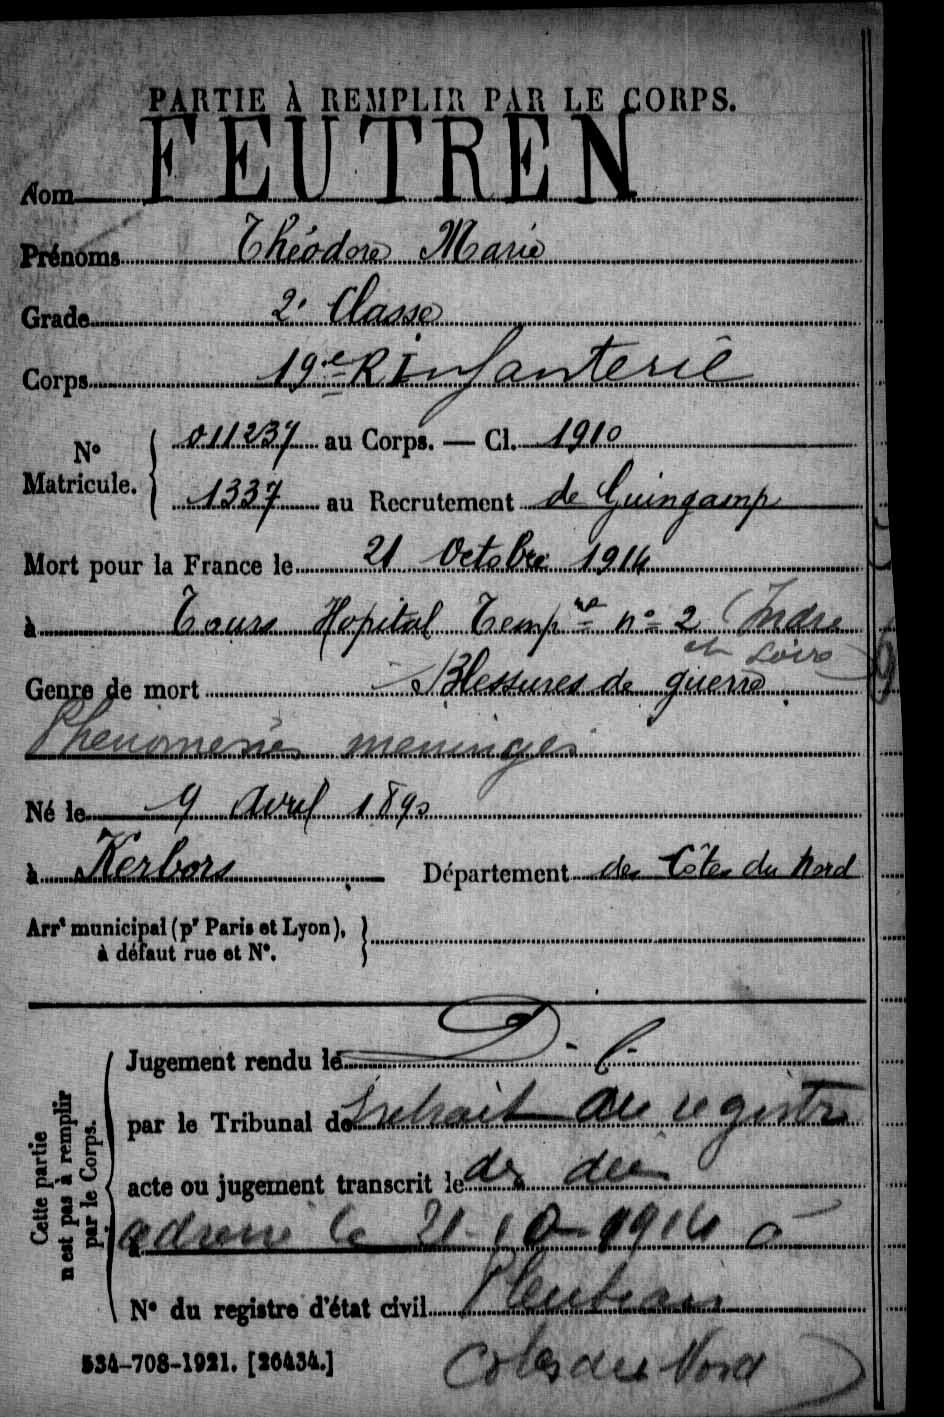 PARTIE À REMPLIR PAR LE CORPS.
Nom FEUTREN
Prénoms Théodore Marie
Grade 2e Classe
Corps 19e R Infanterie
No Matricule. 011237 au Corps. — Cl. 1910
1337 au Recrutement de Guingamp
Mort pour la France le 21 Octobre 1914
à Tours Hopital Tempre no 2 (Indre
et Loire)
Genre de mort Blessures de guerre
Phenomenes meninges
Né le 9 Avril 1890
à Kerbors Département des Côtes du Nord
Arrt municipal (pr Paris et Lyon),
à défaut rue et No.
Cette partie n'est pas à remplir par le Corps.
Jugement rendu le D. C.
par le Tribunal de Extrait du registre
acte ou jugement transcrit le des déc
adressé le 21-10-1914 à
No du registre d'état civil Pleubian
534-708-1921. [26434.] Cotes du Nord